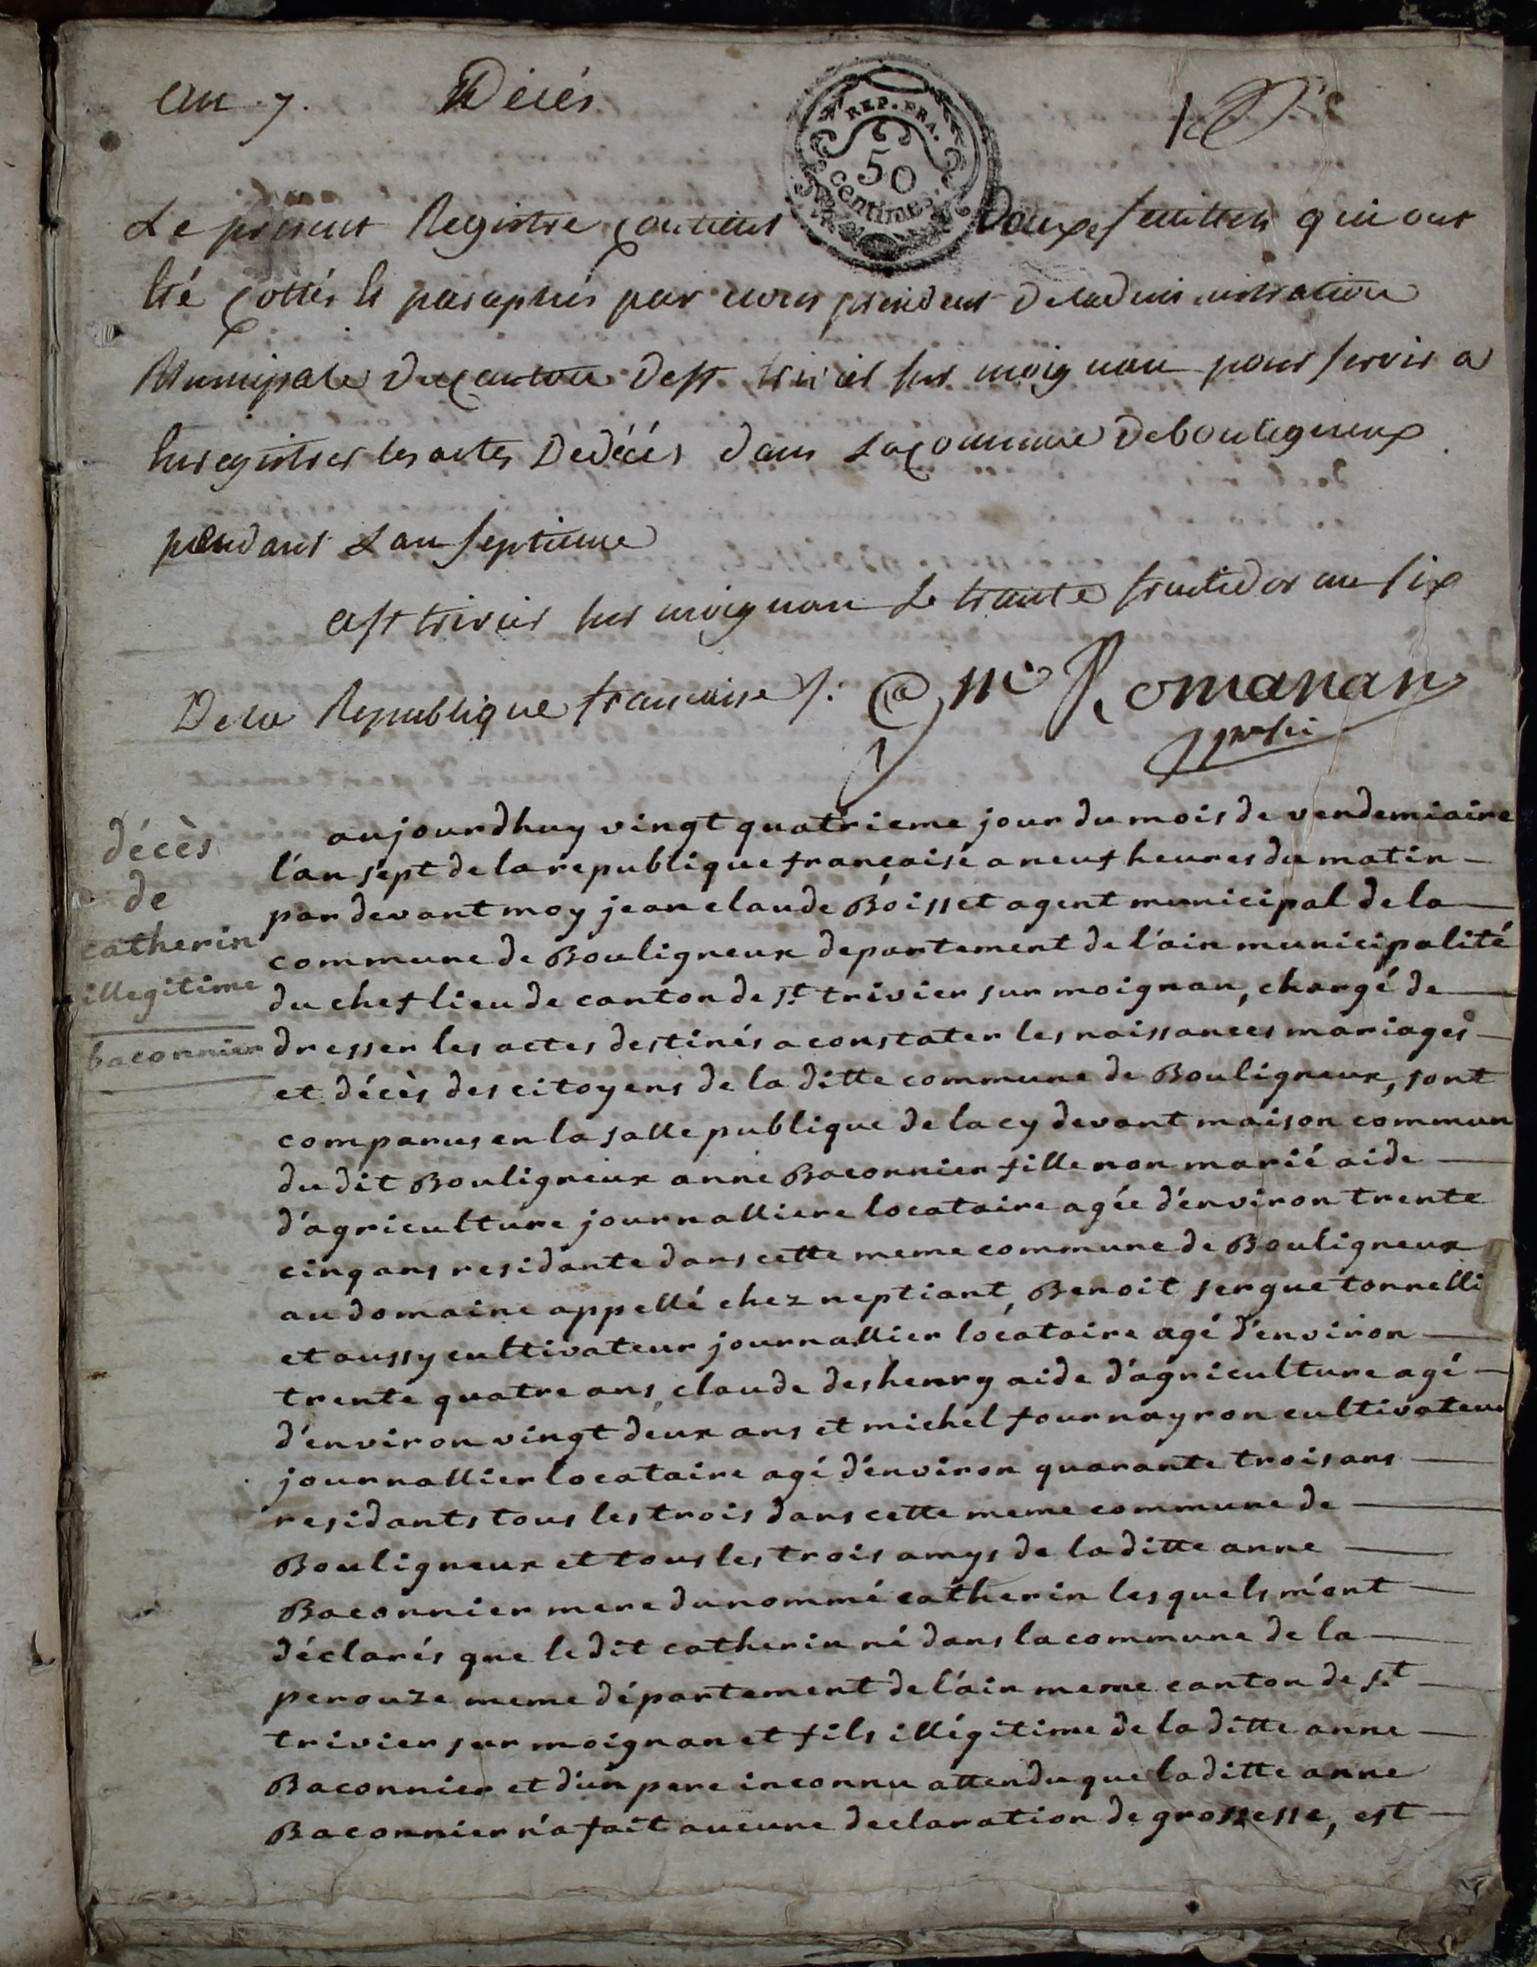 an 7. Décés
REP. FRA.
50
centimes
Le présent Registre contient Douze feuillets qui ont
été Cottés et paraphés par moi président de Ladministration
Municipale Du Canton de st. trivier sur moignan pour servir a
Enregistrer les actes De décés dans La Commune De bouligneux
pendant Lan septieme
a st trivier sur moignan Le trante fructidor an six
De la Republique francaise /: Romanan
décès
de
catherin
illegitime
baconnier
aujourdhuy vingt quatrieme jour du mois de vendemiaire
l'an sept de la republique française a neuf heures du matin
par devant moy jean claude Boisset agent municipal de la
commune de Bouligneux departement de l'ain municipalité
du chef lieu de canton de st. trivier sur moignan, chargé de
dresser les actes destinés a constater les naissances mariages
et décès des citoyens de la ditte commune de Bouligneux, sont
comparus en la salle publique de la cy devant maison commun
du dit Bouligneux anne Baconnier fille non marié aide
d'agriculture journalliere locataire agée d'environ trente
cinq ans residante dans cette meme commune de Bouligneux
au domaine appellé chez neptiant, Benoit sergue tonnelli
et aussy cultivateur journallier locataire agé d'environ
trente quatre ans, claude deshenry aide d'agriculture agé
d'environ vingt deux ans et michel fournayron cultivateur
journallier locataire agé d'environ quarante trois ans
residants tous les trois dans cette meme commune de
Bouligneux et tous les trois amys de la ditte anne
Baconnier mere du nommé catherin les quels m'ont
déclarés que le dit catherin né dans la commune de la
perouze meme département de l'ain meme canton de st.
trivier sur moignan et fils illégitime de la ditte anne
Baconnier et d'un pere inconnu attendu que la ditte anne
Baconnier n'a fait aucune declaration de grossesse, est